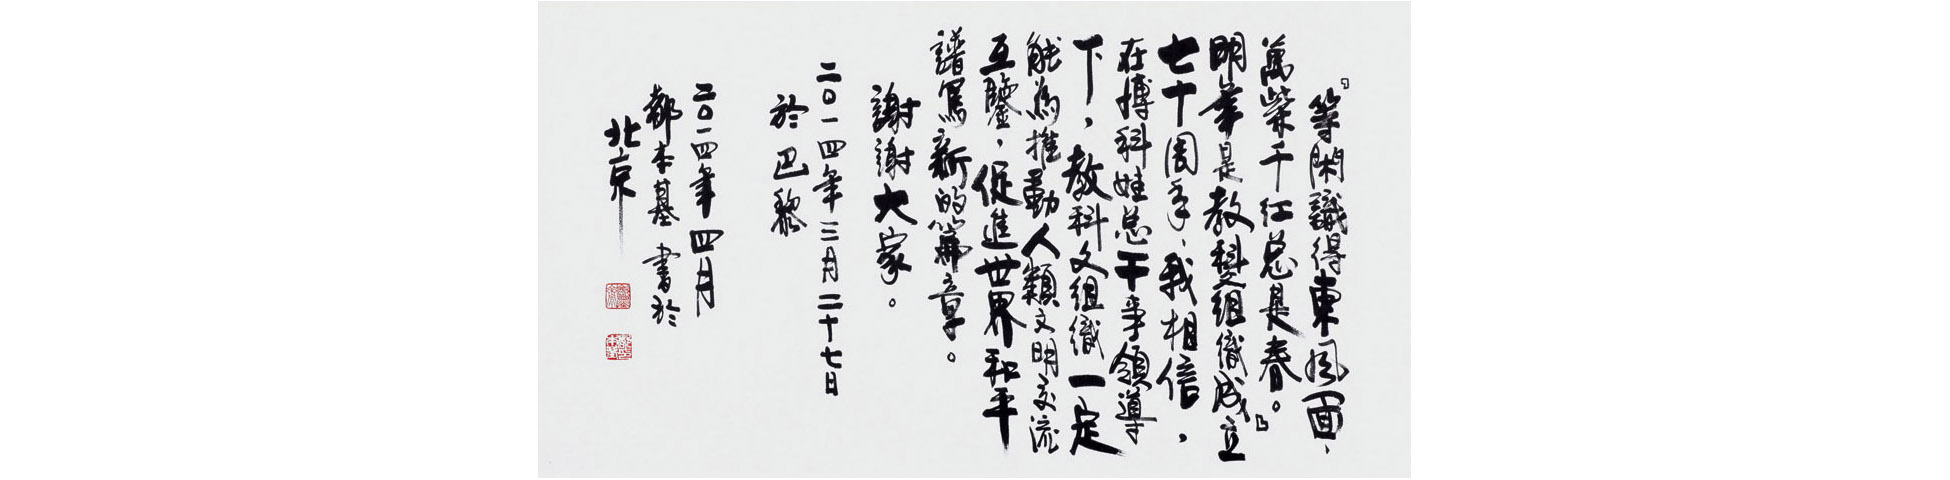 『等閑識得東風面、
萬紫千红总是春。』
明年是教科文組織成立
七十周年、我相信，
在博科娃总干事領導
下，教科文組織一定
能為推動人類文明交流
互鑒，促進世界和平
譜寫新的篇章。
謝謝大家。
二〇一四年三月二十七日
於巴黎
二〇一四年四月
都本基書於
北京